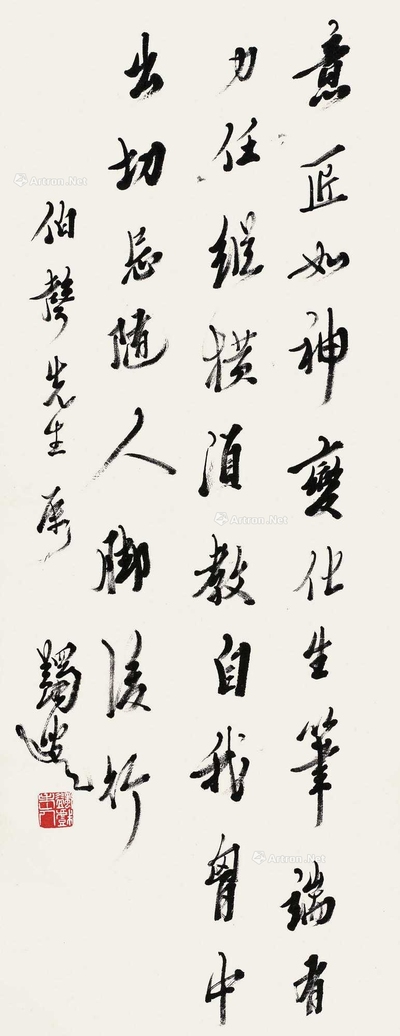 意匠如神變化生筆端有
力任縱橫須教自我胷中
出切忌隨人脚後行
伯聲先生屬
蠲叟
Artron.Net
Artron.Net
Artron.Net